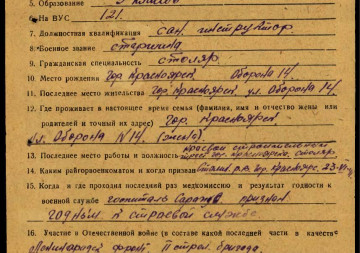 5. Образование 5 классов
6. На ВУС 121.
7. Должностная квалификация сан. инструктор.
8. Военное звание старшина
9. Гражданская специальность столяр.
10. Место рождения гор. Красноярск Обороны 14.
11. Последнее место жительства гор. Красноярск ул. Обороны 14.
12. Где проживает в настоящее время семья (фамилия, имя и отчество жены или
родителя и точный их адрес) гор. Красноярск
ул. Обороны № 14. (жена).
13. Последнее место работы и должность краевой строительный
трест гор. Красноярск. столяр
14. Каким райгорвоенкоматом и когда призван Сталин. р.в.к. гор. Красноярск, 23-
15. Когда и где проходил последний раз медкомиссию и результат годности к
военной службе госпиталь Саратов признан
годным к строевой службе.
16. Участие в Отечественной войне (в составе какой последней части в качестве
Ленинградский фронт стрел. бригада.